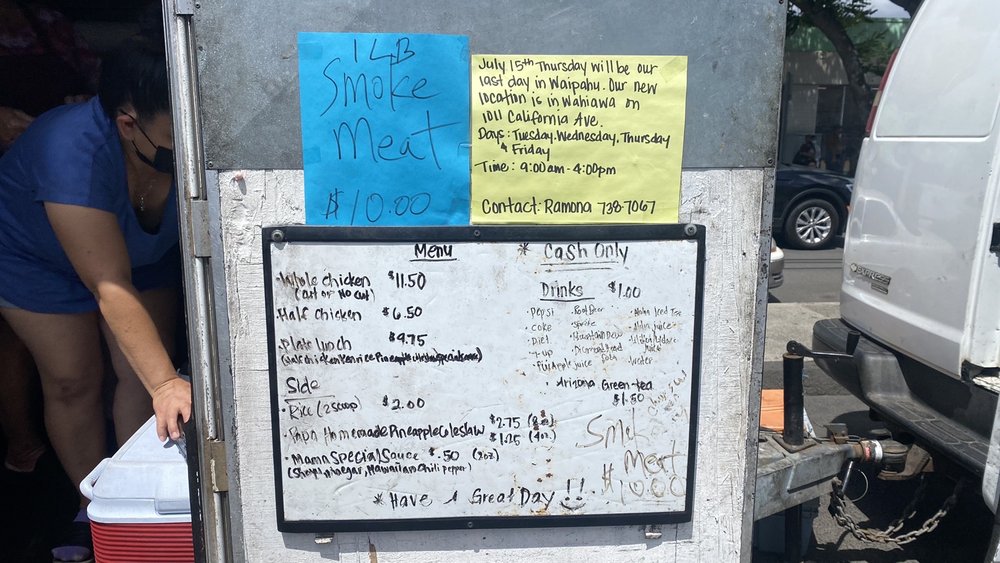 1 LB
Smoke
Meat
$10.00
July 15th Thursday will be our
last day in Waipahu. Our new
location is in Wahiawa on
1011 California Ave.
Days: Tuesday, Wednesday, Thursday
& Friday
Time: 9:00am-4:00pm
Contact: Ramona 738-7067
Menu
· Whole chicken $11.50
(cut or No cut)
· Half Chicken $6.50
· Plate lunch $9.75
Side
· Rice (2 scoop) $2.00
· Papa Homemade Pineapple Coleslaw $2.75 (8oz)
$1.25 (4oz)
· Mama Special Sauce $.50 (2oz)
(Shoyu, vinegar, Hawaiian Chili Pepper)
* Have A Great Day !!
* Cash Only
Drinks $1.00
· Pepsi · Root Beer
· Coke · Sprite
· Diet · Mountain Dew
· 7-up · Diamond Head
· Fuji Apple juice Soda · Water
· Arizona Green-tea
$1.50
Smok
Meat
$10.00
EXPRESS